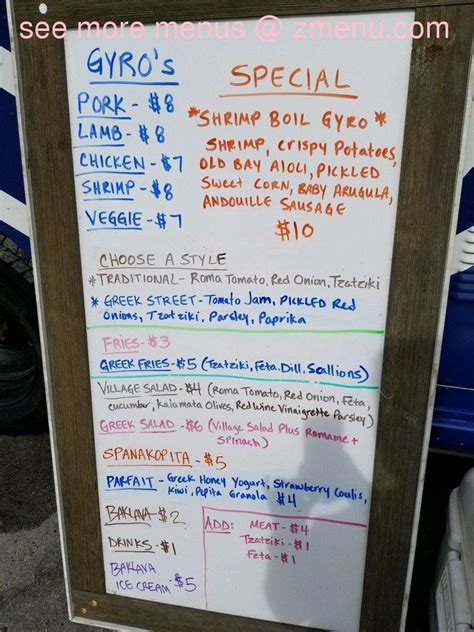 see more menus @ zmenu.com
GYRO's
PORK - $8
LAMB - $8
CHICKEN - $7
SHRIMP - $8
VEGGIE - $7
SPECIAL
*SHRIMP BOIL GYRO*
SHRIMP, CRISPY POTATOES,
OLD BAY AIOLI, PICKLED
SWEET CORN, BABY ARUGULA,
ANDOUILLE SAUSAGE
$10
CHOOSE A STYLE
*TRADITIONAL - Roma Tomato, Red Onion, Tzatziki
*GREEK STREET - Tomato Jam, PICKLED Red
Onions, Tzatziki, Parsley, Paprika
FRIES - $3
GREEK FRIES - $5 (Tzatziki, Feta, Dill, Scallions)
VILLAGE SALAD - $4 (Roma Tomato, Red Onion, Feta,
cucumber, Kalamata Olives, Red Wine Vinaigrette Parsley)
GREEK SALAD - $6 (Village Salad Plus Romaine +
Spinach)
SPANAKOPITA - $5
PARFAIT - Greek Honey Yogurt, Strawberry Coulis,
Kiwi, Pepita Granola $4
BAKLAVA - $2
DRINKS - $1
BAKLAVA
ICE CREAM - $5
ADD: MEAT - $4
Tzatziki - $1
Feta - $1